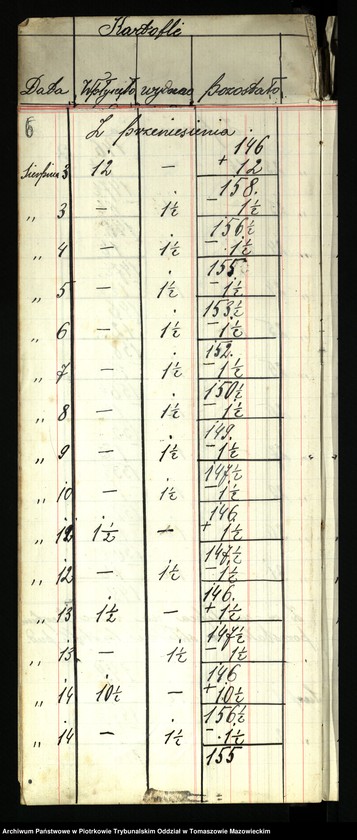 Kartofli
Data Wpłynęło wydano pozostało
6 Z przeniesienia
146
Sierpnia 3 12 — + 12
158.
„ 3 — 1½ — 1½
156½
„ 4 — 1½ — 1½
155
„ 5 — 1½ — 1½
153½
„ 6 — 1½ — 1½
152.
„ 7 — 1½ — 1½
150½
„ 8 — 1½ — 1½
149.
„ 9 — 1½ — 1½
147½
„ 10 — 1½ — 1½
146.
„ 12 1½ — + 1½
147½
„ 12 — 1½ — 1½
146.
„ 13 1½ — + 1½
147½
„ 13 — 1½ — 1½
146
„ 14 10½ — + 10½
156½
„ 14 — 1½ — 1½
155
Archiwum Państwowe w Piotrkowie Trybunalskim Oddział w Tomaszowie Mazowieckim